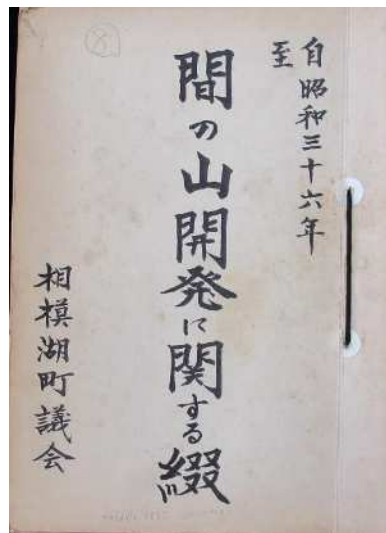 自昭和三十六年
至
間の山開発に関する綴
相模湖町議会